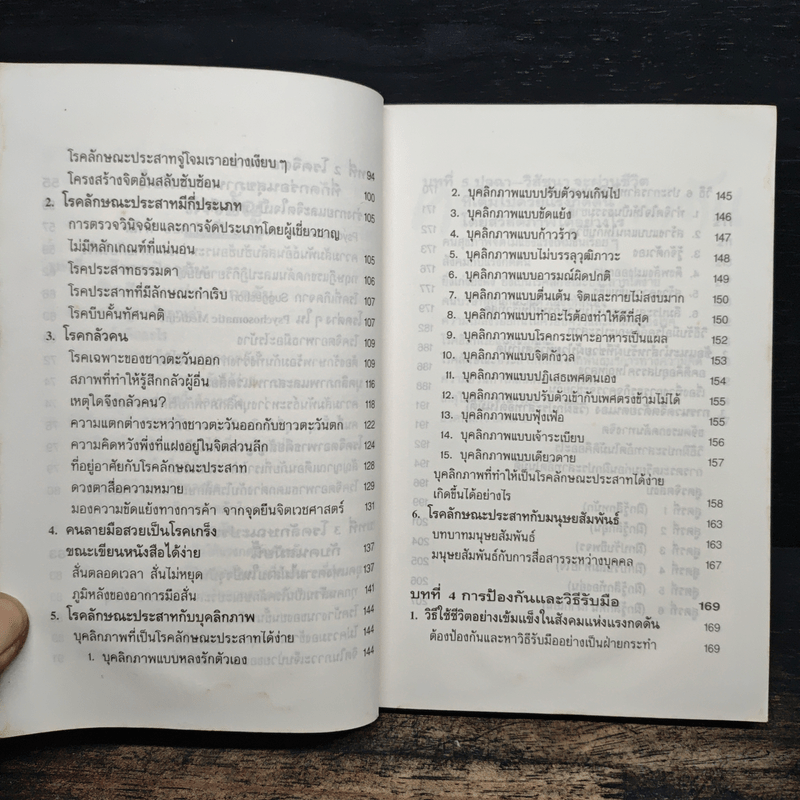 โรคลักษณะประสาทจู่โจมเราอย่างเงียบ ๆ 94
โครงสร้างจิตอันสลับซับซ้อน 100
2. โรคลักษณะประสาทมีกี่ประเภท 105
การตรวจวินิจฉัยและการจัดประเภทโดยผู้เชี่ยวชาญ
ไม่มีหลักเกณฑ์ที่แน่นอน 105
โรคประสาทธรรมดา 105
โรคประสาทที่มีลักษณะกำเริบ 107
โรคบีบคั้นทัศนคติ 107
3. โรคกลัวคน 109
โรคเฉพาะของชาวตะวันออก 109
สภาพที่ทำให้รู้สึกกลัวผู้อื่น 116
เหตุใดจึงกลัวคน? 118
ความแตกต่างระหว่างชาวตะวันออกกับชาวตะวันตก 122
ความคิดหวังพึ่งที่แฝงอยู่ในจิตส่วนลึก 124
ที่อยู่อาศัยกับโรคลักษณะประสาท 128
ดวงตาสื่อความหมาย 129
มองความขัดแย้งทางการค้า จากจุดยืนจิตเวชศาสตร์ 131
4. คนลายมือสวยเป็นโรคเกร็ง
ขณะเขียนหนังสือได้ง่าย 137
สั่นตลอดเวลา สั่นไม่หยุด 137
ภูมิหลังของอาการมือสั่น 141
5. โรคลักษณะประสาทกับบุคลิกภาพ 144
บุคลิกภาพที่เป็นโรคลักษณะประสาทได้ง่าย 144
1. บุคลิกภาพแบบหลงรักตัวเอง 144
2. บุคลิกภาพแบบปรับตัวจนเกินไป 145
3. บุคลิกภาพแบบขัดแย้ง 146
4. บุคลิกภาพแบบก้าวร้าว 147
5. บุคลิกภาพแบบไม่บรรลุวุฒิภาวะ 148
6. บุคลิกภาพแบบอารมณ์ผิดปกติ 149
7. บุคลิกภาพแบบตื่นเต้น จิตและกายไม่สงบมาก 150
8. บุคลิกภาพแบบทำอะไรต้องทำให้ดีที่สุด 150
9. บุคลิกภาพแบบโรคกระเพาะอาหารเป็นแผล 152
10. บุคลิกภาพแบบจิตกังวล 153
11. บุคลิกภาพแบบปฏิเสธเพศตนเอง 154
12. บุคลิกภาพแบบปรับตัวเข้ากับเพศตรงข้ามไม่ได้ 155
13. บุคลิกภาพแบบฟุ้งเฟ้อ 155
14. บุคลิกภาพแบบเจ้าระเบียบ 156
15. บุคลิกภาพแบบเดียวดาย 157
บุคลิกภาพที่ทำให้เป็นโรคลักษณะประสาทได้ง่าย
เกิดขึ้นได้อย่างไร 158
6. โรคลักษณะประสาทกับมนุษยสัมพันธ์ 163
บทบาทมนุษยสัมพันธ์ 163
มนุษยสัมพันธ์กับการสื่อสารระหว่างบุคคล 167
บทที่ 4 การป้องกันและวิธีรับมือ 169
1. วิธีใช้ชีวิตอย่างเข้มแข็งในสังคมแห่งแรงกดดัน 169
ต้องป้องกันและหาวิธีรับมืออย่างเป็นฝ่ายกระทำ 169